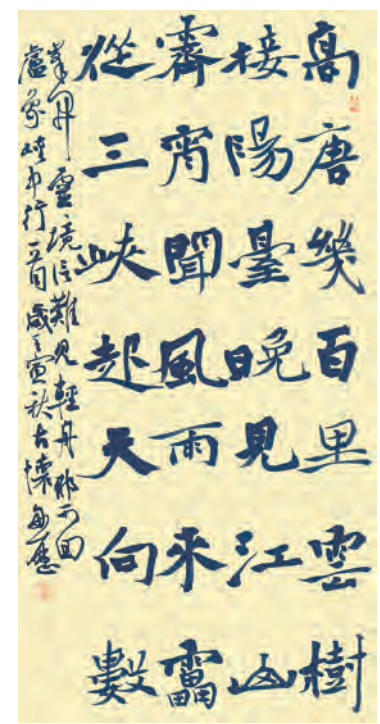 高唐幾百里雲樹
接陽臺晚見江山
霽宵聞風雨來靁
從三峽起天向數
峯開靈境信難見輕舟那可回
盧象峽中行一首歲壬寅秋古懷